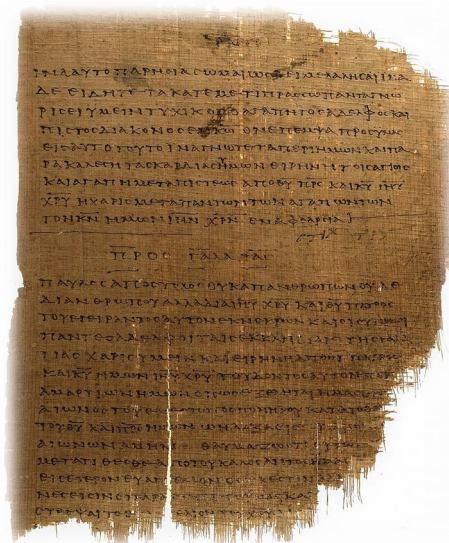 ΙΝΑ ΑΥΤΟ ΠΑΡΗϹΙΑϹΩΜΑΙ ΩϹ ΔΕΙ ΜΕ ΛΑΛΗϹΑΙ ΙΝΑ
ΔΕ ΕΙΔΗΤΕ ΤΑ ΚΑΤ ΕΜΕ ΤΙ ΠΡΑϹϹΩ ΠΑΝΤΑ ΓΝΩ
ΡΙϹΕΙ ΥΜΕΙΝ ΤΥΧΙΚΟϹ Ο ΑΓΑΠΗΤΟϹ ΑΔΕΛΦΟϹ ΚΑΙ
ΠΙϹΤΟϹ ΔΙΑΚΟΝΟϹ ΕΝ ΚΩ ΟΝ ΕΠΕΜΨΑ ΠΡΟϹ ΥΜΑϹ
ΕΙϹ ΑΥΤΟ ΤΟΥΤΟ ΙΝΑ ΓΝΩΤΕ ΤΑ ΠΕΡΙ ΗΜΩΝ ΚΑΙ ΠΑ
ΡΑΚΑΛΕϹΗ ΤΑϹ ΚΑΡΔΙΑϹ ΥΜΩΝ ΕΙΡΗΝΗ ΤΟΙϹ ΑΓΙΟΙϹ
ΚΑΙ ΑΓΑΠΗ ΜΕΤΑ ΠΙϹΤΕΩϹ ΑΠΟ ΘΥ ΠΡϹ ΚΑΙ ΚΥ ΙΗΥ
ΧΡΥ Η ΧΑΡΙϹ ΜΕΤΑ ΠΑΝΤΩΝ ΤΩΝ ΑΓΑΠΩΝΤΩΝ
ΤΟΝ ΚΝ ΗΜΩΝ ΙΗΝ ΧΡΝ ΕΝ ΑΦΘΑΡϹΙΑ
ΠΡΟϹ ΓΑΛΑΤΑϹ
ΠΑΥΛΟϹ ΑΠΟϹΤΟΛΟϹ ΟΥΚ ΑΠ ΑΝΘΡΩΠΩΝ ΟΥΔΕ
ΔΙ ΑΝΘΡΩΠΟΥ ΑΛΛΑ ΔΙΑ ΙΗΥ ΧΡΥ ΚΑΙ ΘΥ ΠΑΤΡΟϹ
ΤΟΥ ΕΓΕΙΡΑΝΤΟϹ ΑΥΤΟΝ ΕΚ ΝΕΚΡΩΝ ΚΑΙ ΟΙ ϹΥΝ ΕΜΟΙ
ΠΑΝΤΕϹ ΑΔΕΛΦΟΙ ΤΑΙϹ ΕΚΚΛΗϹΙΑΙϹ ΤΗϹ ΓΑΛΑ
ΤΙΑϹ ΧΑΡΙϹ ΥΜΕΙΝ ΚΑΙ ΕΙΡΗΝΗ ΑΠΟ ΘΥ ΠΑΤΡΟϹ
ΚΑΙ ΚΥ ΗΜΩΝ ΙΗΥ ΧΡΥ ΤΟΥ ΔΟΝΤΟϹ ΑΥΤΟΝ
ΑΜΑΡΤΙΩΝ ΗΜΩΝ ΟΠΩϹ ΕΞΕΛΗΤΑΙ ΗΜΑϹ
ΑΙΩΝΟϹ ΤΟΥ ΠΟΝΗΡΟΥ ΚΑΤΑ ΤΟ
ΤΟΥ ΘΥ ΚΑΙ ΗΜΩΝ Ω Η ΔΟΞΑ ΕΙϹ
ΑΙΩΝΩΝ ΑΜΗΝ ΘΑΥΜΑΖΩ ΟΤΙ
ΜΕΤΑΤΙΘΕϹΘΕ
ΕΙϹ ΕΤΕΡΟΝ ΕΥΑΓΓΕΛΙΟΝ